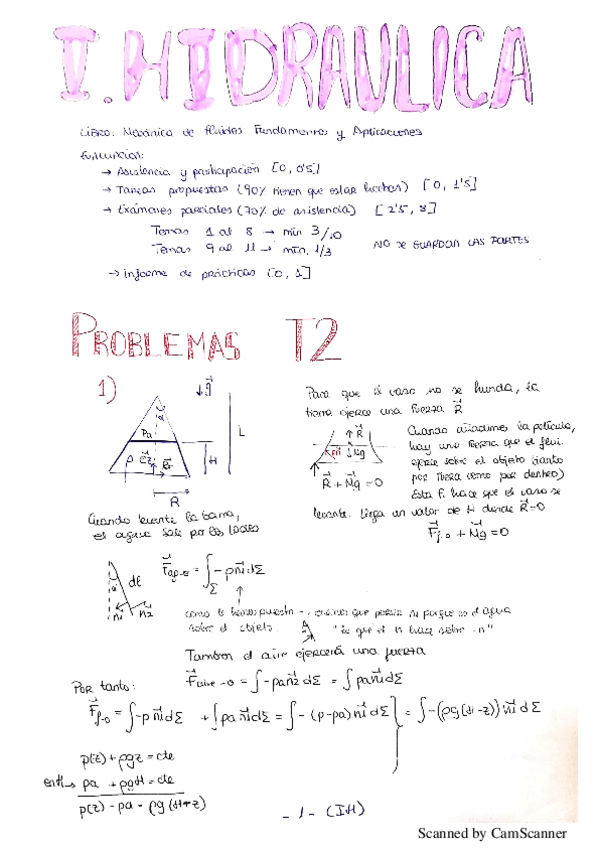 I. HIDRAULICA
Libro: Mecánica de fluidos Fundamentos y Aplicaciones
Evaluación:
→ Asistencia y participación [0, 0'5]
→ Tareas propuestas (90% tienen que estar hechas) [0, 1'5]
→ Exámenes parciales (70% de asistencia) [2'5, 8]
Temas 1 al 8 → min 3/10
Temas 9 al 11 → min. 1/3
NO SE GUARDAN LAS PARTES
→ Informe de prácticas [0, 1]
PROBLEMAS T2
1)
↓g
Pa
L
H
ρ
R
Para que el vaso no se hunda, la
tierra ejerce una fuerza R
↑R
↓Mg
R + Mg = 0
Cuando añadimos la película,
hay una fuerza que el flui.
ejerce sobre el objeto (tanto
por fuera como por dentro)
Esta f. hace que el vaso se
levante. Llega un valor de H donde R=0
Ff-o + Mg = 0
Cuando levante la barra,
el agua sale por los lados
dl
n1 n2
Fag-o = ∫Σ -pn1dΣ
como lo hemos puesto
sobre el objeto
"lo que el
Tambien el aire ejercerá una fuerza
Por tanto:
Faire-o = ∫-pan2dΣ = ∫pan1dΣ
Ff-o = ∫-pn1dΣ + ∫pan1dΣ = ∫-(p-pa)n1dΣ = ∫-(ρg(H-z))n1dΣ
p(z) + ρgz = cte
en H→ pa + ρgH = cte
p(z) - pa = ρg(H-z)
- 1 - (IH)
Scanned by CamScanner